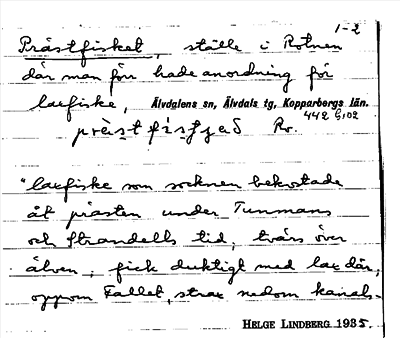 1-2
Prästfisket, ställe i Rotnen
där man förr hade anordning för
laxfiske, Älvdalens sn, Älvdals tg, Kopparbergs län.
442 G,02
Rv.
"laxfiske som socknen bekostade
åt prästen under Tunmans
och Strandells tid, tvärs över
älven, fick duktigt med lax där,
oppom Fallet, strax nedom kanals-
HELGE LINDBERG 1935.